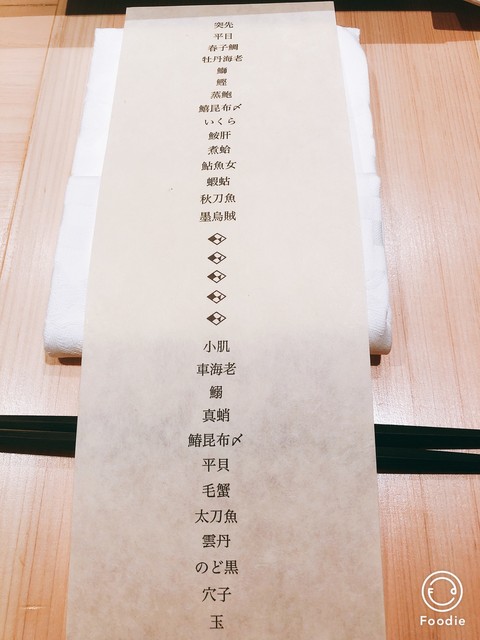 突先
平目
春子鯛
牡丹海老
鰤
鰹
蒸鮑
鱚昆布〆
いくら
鮟肝
煮蛤
鮎魚女
蝦蛄
秋刀魚
墨烏賊
小肌
車海老
鰯
真蛸
鰆昆布〆
平貝
毛蟹
太刀魚
雲丹
のど黒
穴子
玉
Foodie